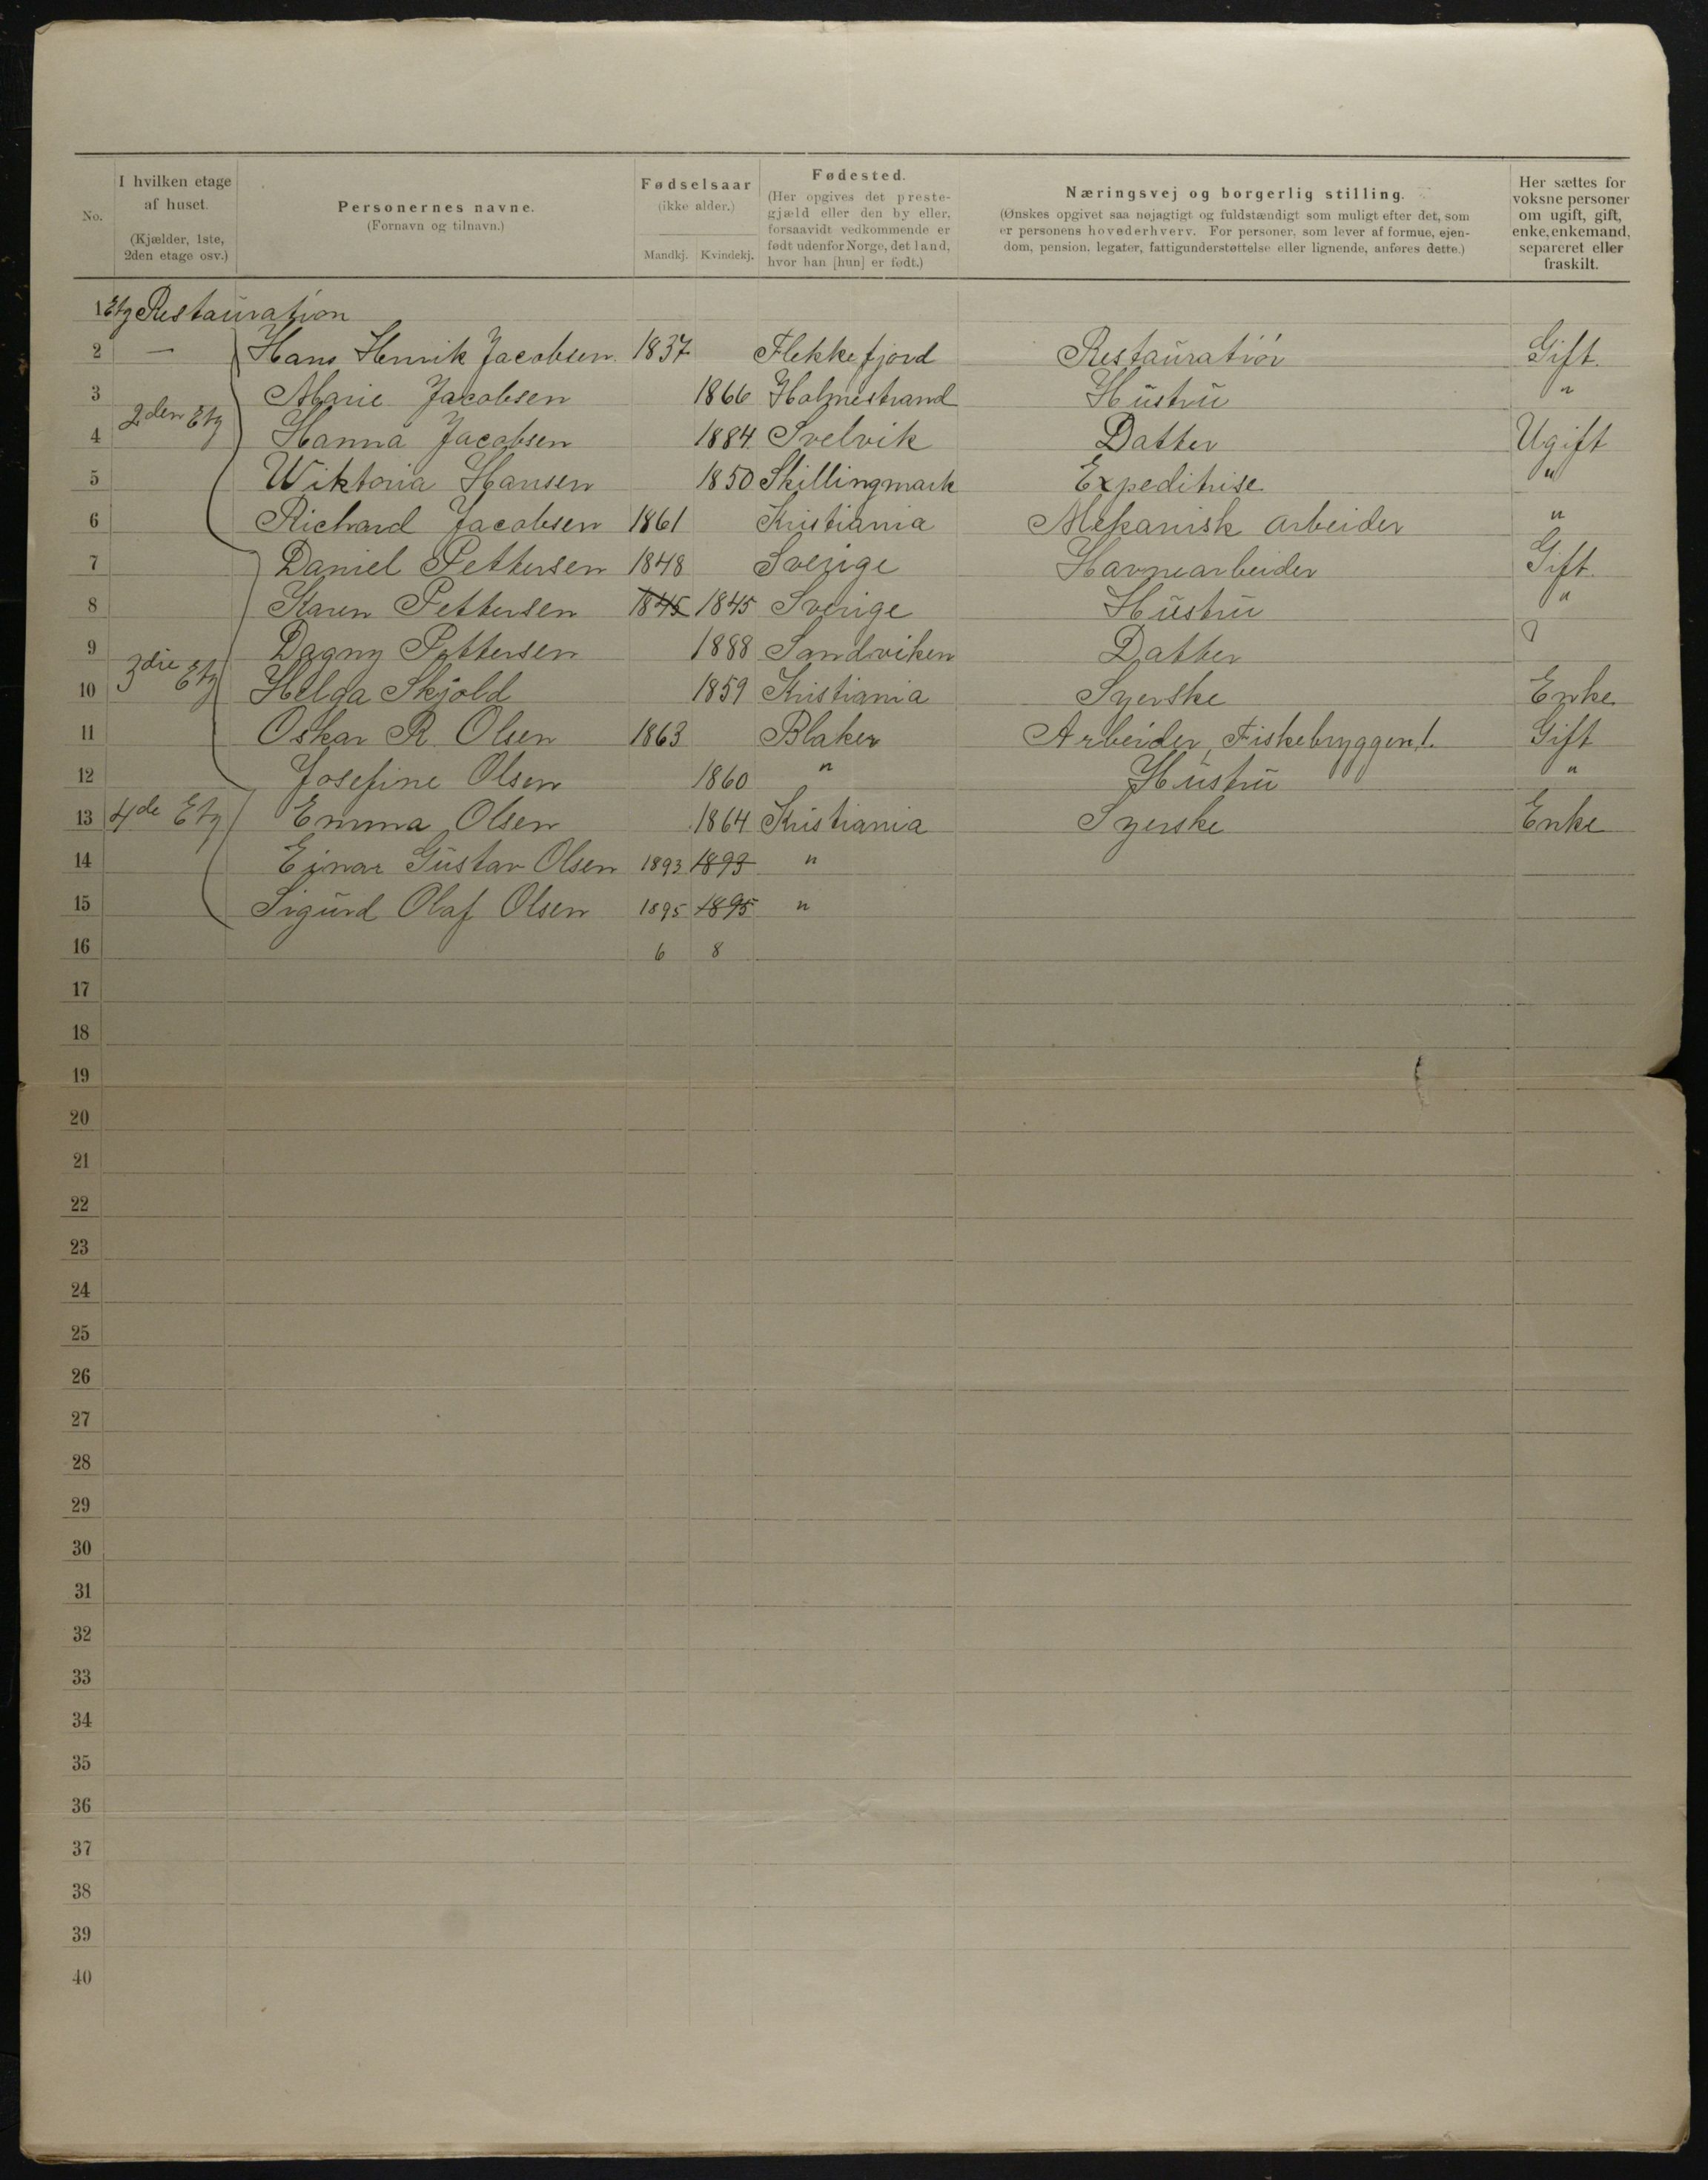 No.
I hvilken etage af huset. (Kjælder, 1ste, 2den etage osv.)
Personernes navne. (Fornavn og tilnavn.)
Fødselsaar (ikke alder.) Mandkj. Kvindekj.
Fødested. (Her opgives det prestegjæld eller den by eller, forsaavidt vedkommende er født udenfor Norge, det land, hvor han [hun] er født.)
Næringsvej og borgerlig stilling. (Ønskes opgivet saa nøjagtigt og fuldstændigt som muligt efter det, som er personens hovederhverv. For personer, som lever af formue, ejendom, pension, legater, fattigunderstøttelse eller lignende, anføres dette.)
Her sættes for voksne personer om ugift, gift, enke, enkemand, separeret eller fraskilt.
1 Etg Restauration
2 — Hans Henrik Jacobsen 1837 Flekkefjord Restauratiør Gift.
3 Marie Jacobsen 1866 Holmestrand Hustru "
2den Etg
4 Hanna Jacobsen 1884 Svelvik Datter Ugift
5 Wiktoria Hansen 1850 Skillingmark Expeditrise "
6 Richard Jacobsen 1861 Kristiania Mekanisk arbeider "
7 Daniel Pettersen 1848 Sverige Havnearbeider Gift.
8 Karen Pettersen 1845 1845 Sverige Hustru "
9 Dagny Pettersen 1888 Sandviken Datter
3die Etg
10 Helga Skjold 1859 Kristiania Syerske Enke
11 Oskar R. Olsen 1863 Blaker Arbeider, Fiskebryggen!. Gift
12 Josefine Olsen 1860 " Hustru "
13 4de Etg Emma Olsen 1864 Kristiania Syerske Enke
14 Einar Gustav Olsen 1893 1893 "
15 Sigurd Olaf Olsen 1895 1895 "
16 6 8
17
18
19
20
21
22
23
24
25
26
27
28
29
30
31
32
33
34
35
36
37
38
39
40